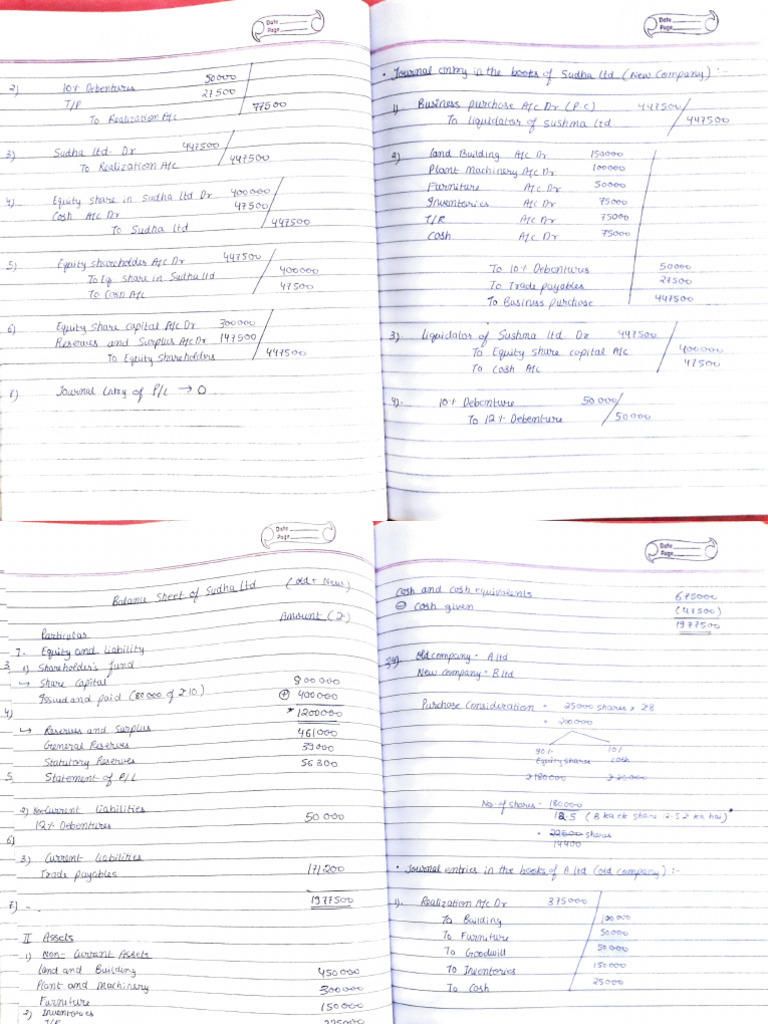 Date
Page
2) 10% Debentures 50000
T/P 27500
To Realization A/c 77500
3) Sudha ltd Dr 447500
To Realization A/c 447500
4) Equity share in Sudha ltd Dr 400000
Cash A/c Dr 47500
To Sudha ltd 447500
5) Equity shareholder A/c Dr 447500
To Eq. share in Sudha ltd 400000
To Cash A/c 47500
6) Equity share capital A/c Dr 300000
Reserves and Surplus A/c Dr 147500
To Equity shareholders 447500
Journal Entry of P/L → 0
Date
Page
• Journal entry in the books of Sudha ltd (New Company) :-
1) Business purchase A/c Dr (P.C) 447500
To liquidator of Sushma ltd 447500
2) land Building A/c Dr 150000
Plant Machinery A/c Dr 100000
Furniture A/c Dr 50000
Inventories A/c Dr 75000
T/R A/c Dr 75000
Cash A/c Dr 75000
To 10% Debentures 50000
To Trade payables 27500
To Business purchase 447500
3) liquidator of Sushma ltd Dr 447500
To Equity share capital A/c 400000
To Cash A/c 47500
4) 10% Debenture 50000
To 12% Debenture 50000
Date
Page
Balance Sheet of Sudha Ltd (old + New)
Particulars Amount (₹)
I. Equity and liability
1) Shareholder's fund
↳ Share capital 800000
Issued and paid (80000 of ₹10) + 400000
* 1200000
↳ Reserves and Surplus
General Reserves 461000
Statutory Reserves 39000
Statement of P/L 56300
2) Non current liabilities
12% Debentures 50000
3) Current liabilities
Trade payables 171200
1977500
II Assets
1) Non-Current Assets
Land and Building 450000
Plant and Machinery 300000
Furniture 150000
2) Inventories
T/R 225000
Date
Page
Cash and cash equivalents 675000
⊖ Cash given (47500)
1977500
Old company = A ltd
New company = B ltd
Purchase Consideration = 25000 shares × ₹8
= 200000
90% 10%
Equity shares cash
₹180000 ₹20000
No. of shares = 180000
12.5 (B ka ek share 12.5₹ ka hai)
= shares
14400
• Journal entries in the books of A ltd (old company) :-
1). Realization A/c Dr 375000
To Building 100000
To Furniture 50000
To Goodwill 50000
To Inventories 150000
To Cash 25000